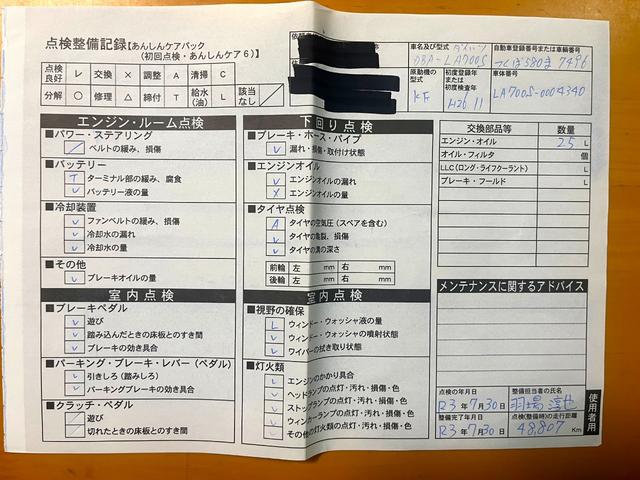 点検整備記録【あんしんケアパック
(初回点検・あんしんケア6)】
点検良好 レ 交換 × 調整 A 清掃 C
分解 ○ 修理 △ 締付 T 給水(油) L 該当なし ／
車名及び型式 ダイハツ DBA-LA700S
自動車登録番号または車輌番号 つくば580ま7496
原動機の型式 KF
初度登録年または初度検査年 H26.11
車体番号 LA700S-0004340
エンジン・ルーム点検
■パワー・ステアリング
／ ベルトの緩み、損傷
■バッテリー
T ターミナル部の緩み、腐食
レ バッテリー液の量
■冷却装置
レ ファンベルトの緩み、損傷
レ 冷却水の漏れ
レ 冷却水の量
■その他
レ ブレーキオイルの量
室内点検
■ブレーキペダル
レ 遊び
レ 踏み込んだときの床板とのすき間
レ ブレーキの効き具合
■パーキング・ブレーキ・レバー(ペダル)
レ 引きしろ(踏みしろ)
レ パーキングブレーキの効き具合
■クラッチ・ペダル
／ 遊び
／ 切れたときの床板とのすき間
下回り点検
■ブレーキ・ホース・パイプ
レ 漏れ・損傷・取付け状態
■エンジンオイル
レ エンジンオイルの漏れ
× エンジンオイルの量
■タイヤ点検
A タイヤの空気圧(スペアを含む)
レ タイヤの亀裂、損傷
レ タイヤの溝の深さ
前輪 左 mm 右 mm
後輪 左 mm 右 mm
室内点検
■視野の確保
L ウィンドー・ウォッシャ液の量
レ ウィンドー・ウォッシャの噴射状態
レ ワイパーの拭き取り状態
■灯火類
レ エンジンのかかり具合
レ ヘッドランプの点灯・汚れ・損傷・色
レ ストップランプの点灯・汚れ・損傷・色
レ ウィンカーランプの点灯・汚れ・損傷・色
レ その他の灯火類の点灯・汚れ・損傷・色
交換部品等 数量
エンジン・オイル 2.5 L
オイル・フィルタ 個
LLC(ロング・ライフクーラント) L
ブレーキ・フールド L
メンテナンスに関するアドバイス
点検の年月日 R3年7月30日
整備担当者の氏名 羽場 淳也
整備完了年月日 R3年7月30日
点検(整備時)の走行距離 48,807 Km
使用者用